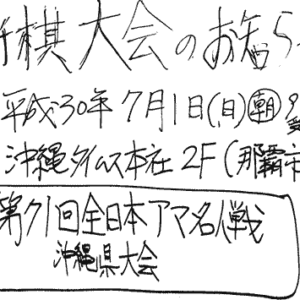 将棋大会のお知ら
平成30年7月1日(日)朝9
沖縄タイムス本社2F(那覇市
第71回全日本アマ名人戦
沖縄県大会